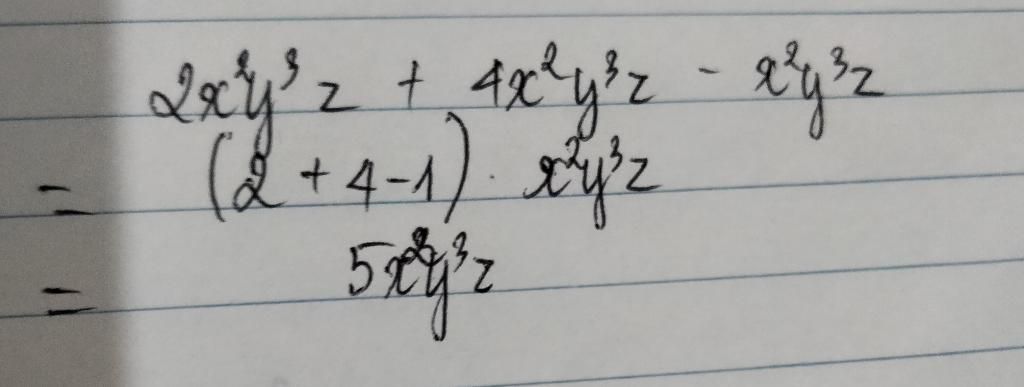 2x²y³z + 4x²y³z - x²y³z
= (2 + 4 - 1) . x²y³z
= 5x²y³z